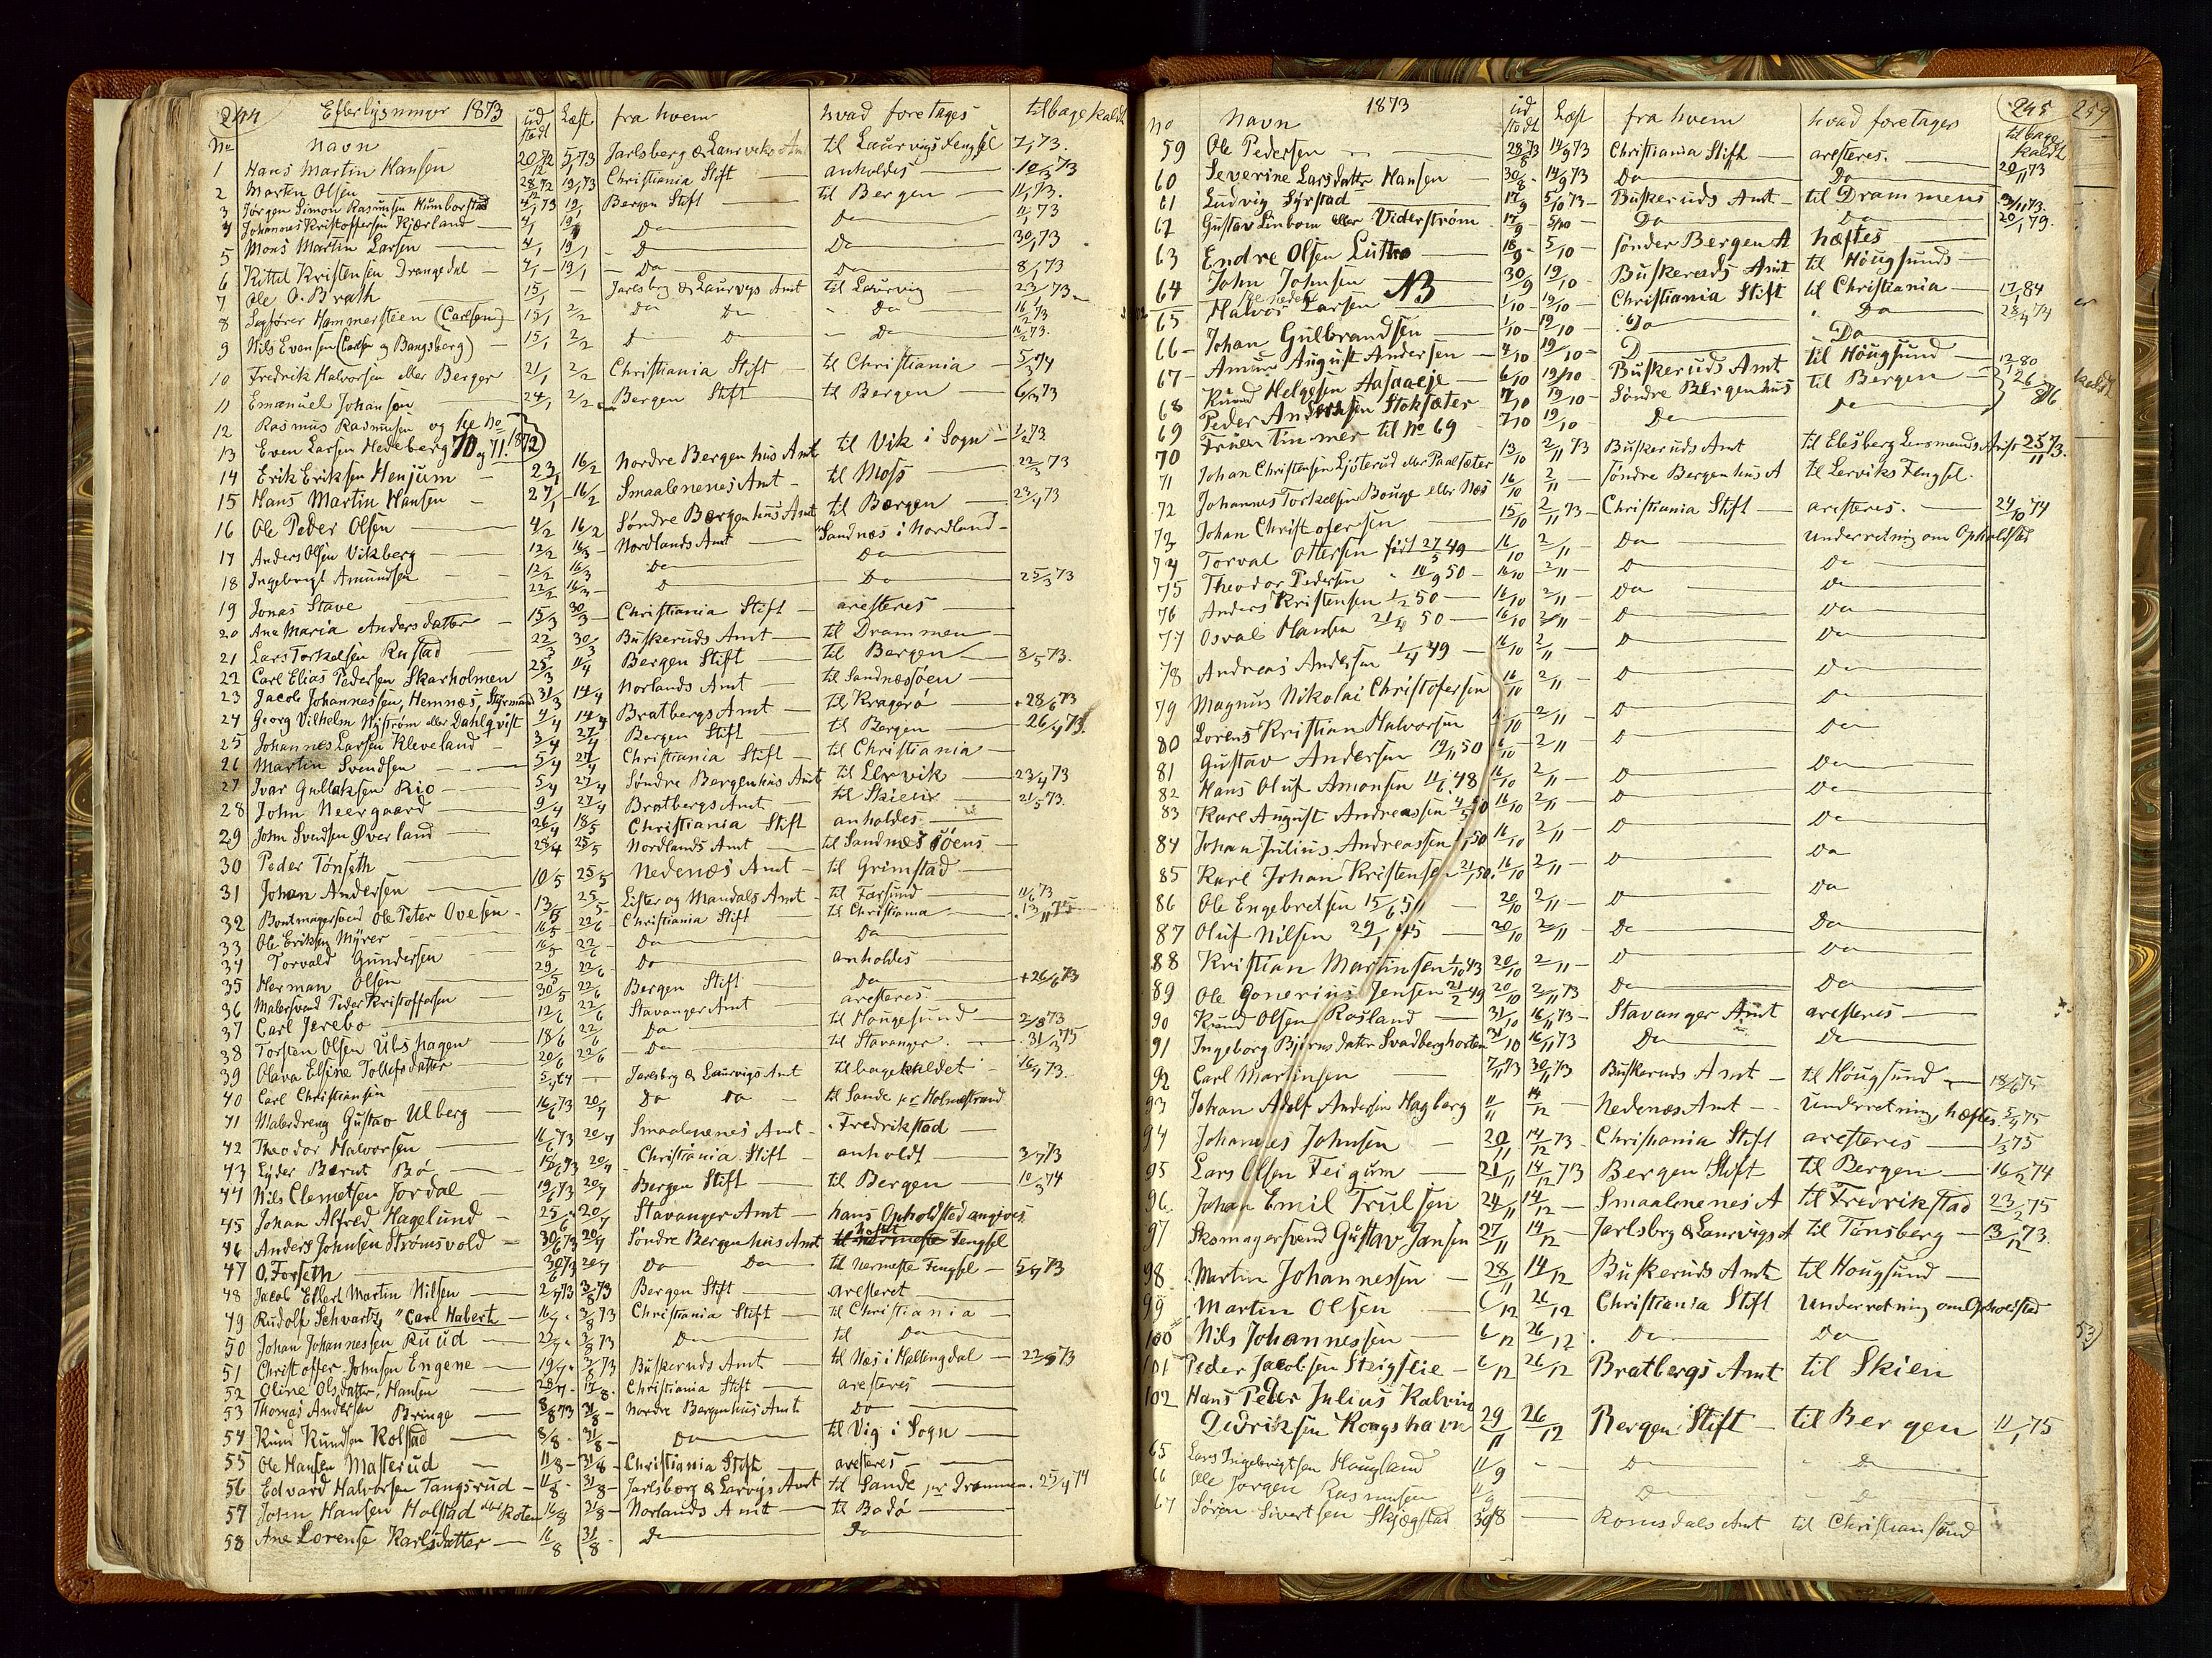 244 Efterlysninger 1873
No Navn ud stædt Læst fra hvem hvad foretages tilbage kaldt
1 Hans Martin Hansen 20/12 72 5/1 73 Jarlsberg & Laurviks Amt til Laurvigs Fengsel
2 Martin Olsen 28/12 72 19/1 73 Christiania Stift anholdes 10/3 73
3 Jørgen Simon Rasmusen 4/1 73 19/1 Bergen Stift til Bergen
4 Johannes Kristoffersen Kjærland 4/1 19/1 Do Do
5 Mons Martin Larsen 4/1 19/1 Do Do
6 Kittel Kristensen Drangedal 4/1 19/1 Do Do 8/1 73
7 Ole O. Brath 15/1 Jarlsberg & Laurvigs Amt til Laurvig
8 Sagfører Hammersteen (Carlsen) 15/1 2/2 Do Do Do
9 Nils Evensen (Carlsen og Bangsberg) 15/1 2/2 D D Do
10 Fredrik Halvorsen eller Berger 21/1 2/2 Christiania Stift til Christiania
11 Emanuel Johansen 24/1 2/2 Bergen Stift til Bergen
12 Rasmus Rasmusen og se No
13 Even Larsen Hedeberg 70 og 71. 1872
14 Erik Eriksen Henjum 23/1 16/2 Nordre Bergenhus Amt til Vik i Sogn
15 Hans Martin Hansen 27/1 16/2 Smaalenenes Amt til Moss 22/3 73
16 Ole Peder Olsen 4/2 16/2 Søndre Bergenhus Amt til Bergen 23/4 73
17 Anders Olsen Vikberg 12/2 16/3 Nordlands Amt Sandnes i Nordland
18 Ingebrigt Amundsen 12/2 16/3 Do Do
19 Jonas Stave 22/2 16/3 D Do 25/3 73
20 Ane Maria Andersdatter 15/3 30/3 Christiania Stift aresteres
21 Lars Torkelsen Rustad 22/3 30/3 Buskeruds Amt til Drammen
22 Carl Elias Pedersen Skarholmen 25/3 Bergen Stift til Bergen 8/5 73.
23 Jacob Johannessen, Hemnes, Styrmand 31/3 14/4 Norlands Amt til Sandnessøen
24 Georg Vilhelm Nystrøm eller Dahlqvist 4/4 14/4 Bratbergs Amt til Kragerø 28/6 73
25 Johannes Larsen Kleveland 3/4 27/4 Bergen Stift til Bergen 26/4 73.
26 Martin Svendsen 5/4 27/4 Christiania Stift til Christiania
27 Ivar Gullaksen Rio 5/4 27/4 Søndre Bergenhus Amt til Lervik 23/4 73
28 John Neergaard 9/4 27/4 Bratbergs Amt til Skien 21/5 73.
29 John Svendsen Øverland 26/4 18/5 Christiania Stift anholdes
30 Peder Tønseth 25/5 Nordlands Amt til Sandnessøens
31 Johan Andersen 10/5 25/5 Nedenæs Amt til Grimstad
32 Bontmagersvend Ole Peter Ovesen 13/5 25/5 Lister og Mandals Amt til Farsund 11/6 73
33 Ole Eriksen Myrer 16/5 22/6 Christiania Stift til Christiania 13/11 75
34 Torvald Gundersen 16/5 22/6 Do Do
35 Herman Olsen 29/5 22/6 Do anholdes
36 Malersvend Peder Kristoffersen 30/5 22/6 Bergen Stift Do +26/6 73
37 Carl Jerebo 12/6 22/6 Stavanger Amt aresteres
38 Torsten Olsen Ulvshagen 18/6 22/6 Do til Hougesund 2/8 73
39 Olava Elsine Tollefsdatter 20/6 22/6 Do til Stavanger 31/3 75
40 Carl Christiansen Jarlsberg & Laurvigs Amt tilbagekaldet
41 Malerdreng Gustav Ulberg 16/6 73 20/7 Do Do til Sande pr Holmestrand
42 Theodor Halvorsen 16/6 73 20/7 Smaalenenes Amt Fredrikstad
43 Lyder Bernt Bø 18/6 73 20/7 Christiania Stift anholdt 3/7 73
44 Nils Clemetsen Jordal 19/6 73 20/7 Bergen Stift til Bergen 10/3 74
45 Johan Alfred Hagelund 25/6 20/7 Stavanger Amt hans Opholdsted angives
46 Anders Johnsen Strømsvold 30/6 73 20/7 Søndre Bergenhus Amt til nermeste Fengsel
47 O. Forseth 30/6 73 20/7 Do Do til nermeste Fengsel 5/7 73
48 Jacob Ellert Martin Nilsen 2/7 73 3/8 73 Bergen Stift aresteret
49 Rudolf Schvartz, "Carl Habert 16/7 3/8 73 Christiania Stift til Christiania
50 Johan Johannessen Ruud 3/8 73 Do til Do
51 Christoffer Johnsen Engene 19/7 3/8 73 Buskeruds Amt til Næs i Hallingdal
52 Oline Olsdatter, Hansen 28/7 17/8 Christiania Stift aresteres
53 Thomas Andersen Bringe 8/8 73 31/8 Nordre Bergenhus Amt Do
54 Knud Knudsen Kolstad 8/8 31/8 Do til Vig i Sogn
55 Ole Hansen Masterud 11/8 31/8 Christiania Stift aresteres
56 Edvard Halvorsen Tangsrud 11/8 31/8 Jarlsberg & Larvigs Amt til Sande pr Drammen 25/4 74
57 John Hansen Holstad eller Roten 16/8 31/8 Norlands Amt til Bodø
58 Ane Lorense Karlsdatter 16/8 31/8 Do Do
1873 245 259
No Navn ud stædt Læst fra hvem hvad foretages tilbage kaldt
59 Ole Pedersen 28/8 73 14/9 73 Christiania Stift aresteres.
60 Severine Larsdatter Hansen 30/8 14/9 73 Do Do 20/11 73
61 Ludvig Syrstad 17/9 5/10 73 Buskeruds Amt til Drammens
62 Gustav Linbom eller Viderstrøm 17/9 5/10 Do Do 20/1 79.
63 Endre Olsen Luthro 18/9 5/10 Sønder Bergen A hæftes
64 John Johnsen 30/9 19/10 Buskeruds Amt til Hougsunds
65 Halvor Larsen NB 1/10 19/10 Christiania Stift til Christiania
66 Johan Gulbrandsen 1/10 19/10 Do Do
67 August Andersen 4/10 19/10 D Do
68 Knud Helgesen Aasaaeje 6/10 19/10 Buskeruds Amt til Hougsund
69 Peder Andersen Stoksæter 7/10 19/10 Søndre Bergenhus til Bergen
70 Fruentimmer til No 69 7/10 19/10 Do Do
71 Johan Christensen Ljøterud eller Paalsæter 13/10 2/11 73 Buskeruds Amt til Elesberg Lensmands Arest 25/11 73.
72 Johannes Torkelsen Bouge eller Næs 16/10 2/11 Søndre Bergenhus A til Lerviks Fengsel.
73 Johan Christofersen 15/10 2/11 73 Christiania Stift aresteres. 24/10 74
74 Torval Ottersen født 27/5 49 16/10 2/11 Do Underretning om Opholdsted
75 Theodor Pedersen 50 16/10 2/11 D Do
76 Anders Kristensen 1/2 50 16/10 2/11 Do Do
77 Osval Hansen 21/4 50 16/10 2/11 D Do
78 Andreas Andersen 1/4 49 16/10 2/11 D Do
79 Magnus Nikolai Christofersen 16/10 2/11 D Do
80 Lorens Kristian Halvorsen 2/11 D D
81 Gustav Andersen 19/11 50 16/10 2/11 D Do
82 Hans Oluf Amonsen 11/6 48 16/10 2/11 D Do
83 Karl August Andreassen 16/10 2/11 D Do
84 Johan Julius Andreassen 50 16/10 2/11 D Do
85 Karl Johan Kristensen 16/10 2/11 D Do
86 Ole Engebretsen 20/10 2/11 D Do
87 Oluf Nilsen 29/1 45 20/10 2/11 Do Do
88 Kristian Martinsen 1/10 43 20/10 2/11 D Do
89 Ole Gonerius Jensen 21/2 49 20/10 2/11 73 Do Do
90 Knud Olsen Rosland 31/10 16/11 73 Stavanger Amt aresteres
91 Ingeborg Bjørnsdatter Svadberghorten 31/10 16/11 73 Do Do
92 Carl Martinsen 7/11 73 30/11 73 Buskeruds Amt til Hougsund 18/6 75
93 Johan Adolf Andersen Hagberg 11/11 14/12 Nedenæs Amt Underretning, hæftes
94 Johannes Johnsen 20/11 14/12 73 Christiania Stift aresteres 1/3 75
95 Lars Olsen Feigum 21/11 14/12 73 Bergen Stift til Bergen 16/2 74
96 Johan Emil Trulsen 24/11 14/12 Smaalenenes A til Fredrikstad 23/2 75
97 Skomagersvend Gustav Jansen 27/11 14/12 Jarlsbrg & Laurvigs A til Tønsberg 13/12 73.
98 Martin Johannessen 28/11 14/12 Buskeruds Amt til Hougsund
99 Martin Olsen 6/12 26/12 Christiania Stift Underretning om Opholdsted
100 Nils Johannessen 6/12 26/12 Do Do
101 Peder Jacobsen Steigslie 6/12 26/12 Bratbergs Amt til Skien
102 Hans Peder Julius Kalvin
Didriksen Kongshavn 29/11 26/12 Bergen Stift til Bergen 11/1 75
65 Lars Ingebrigtsen Hougland 11/9 D D
66 Ole Jørgen Rasmusen 11/9 D D
67 Søren Sivertsen Skjøgstad 30/8 Romsdals Amt til Christiansund